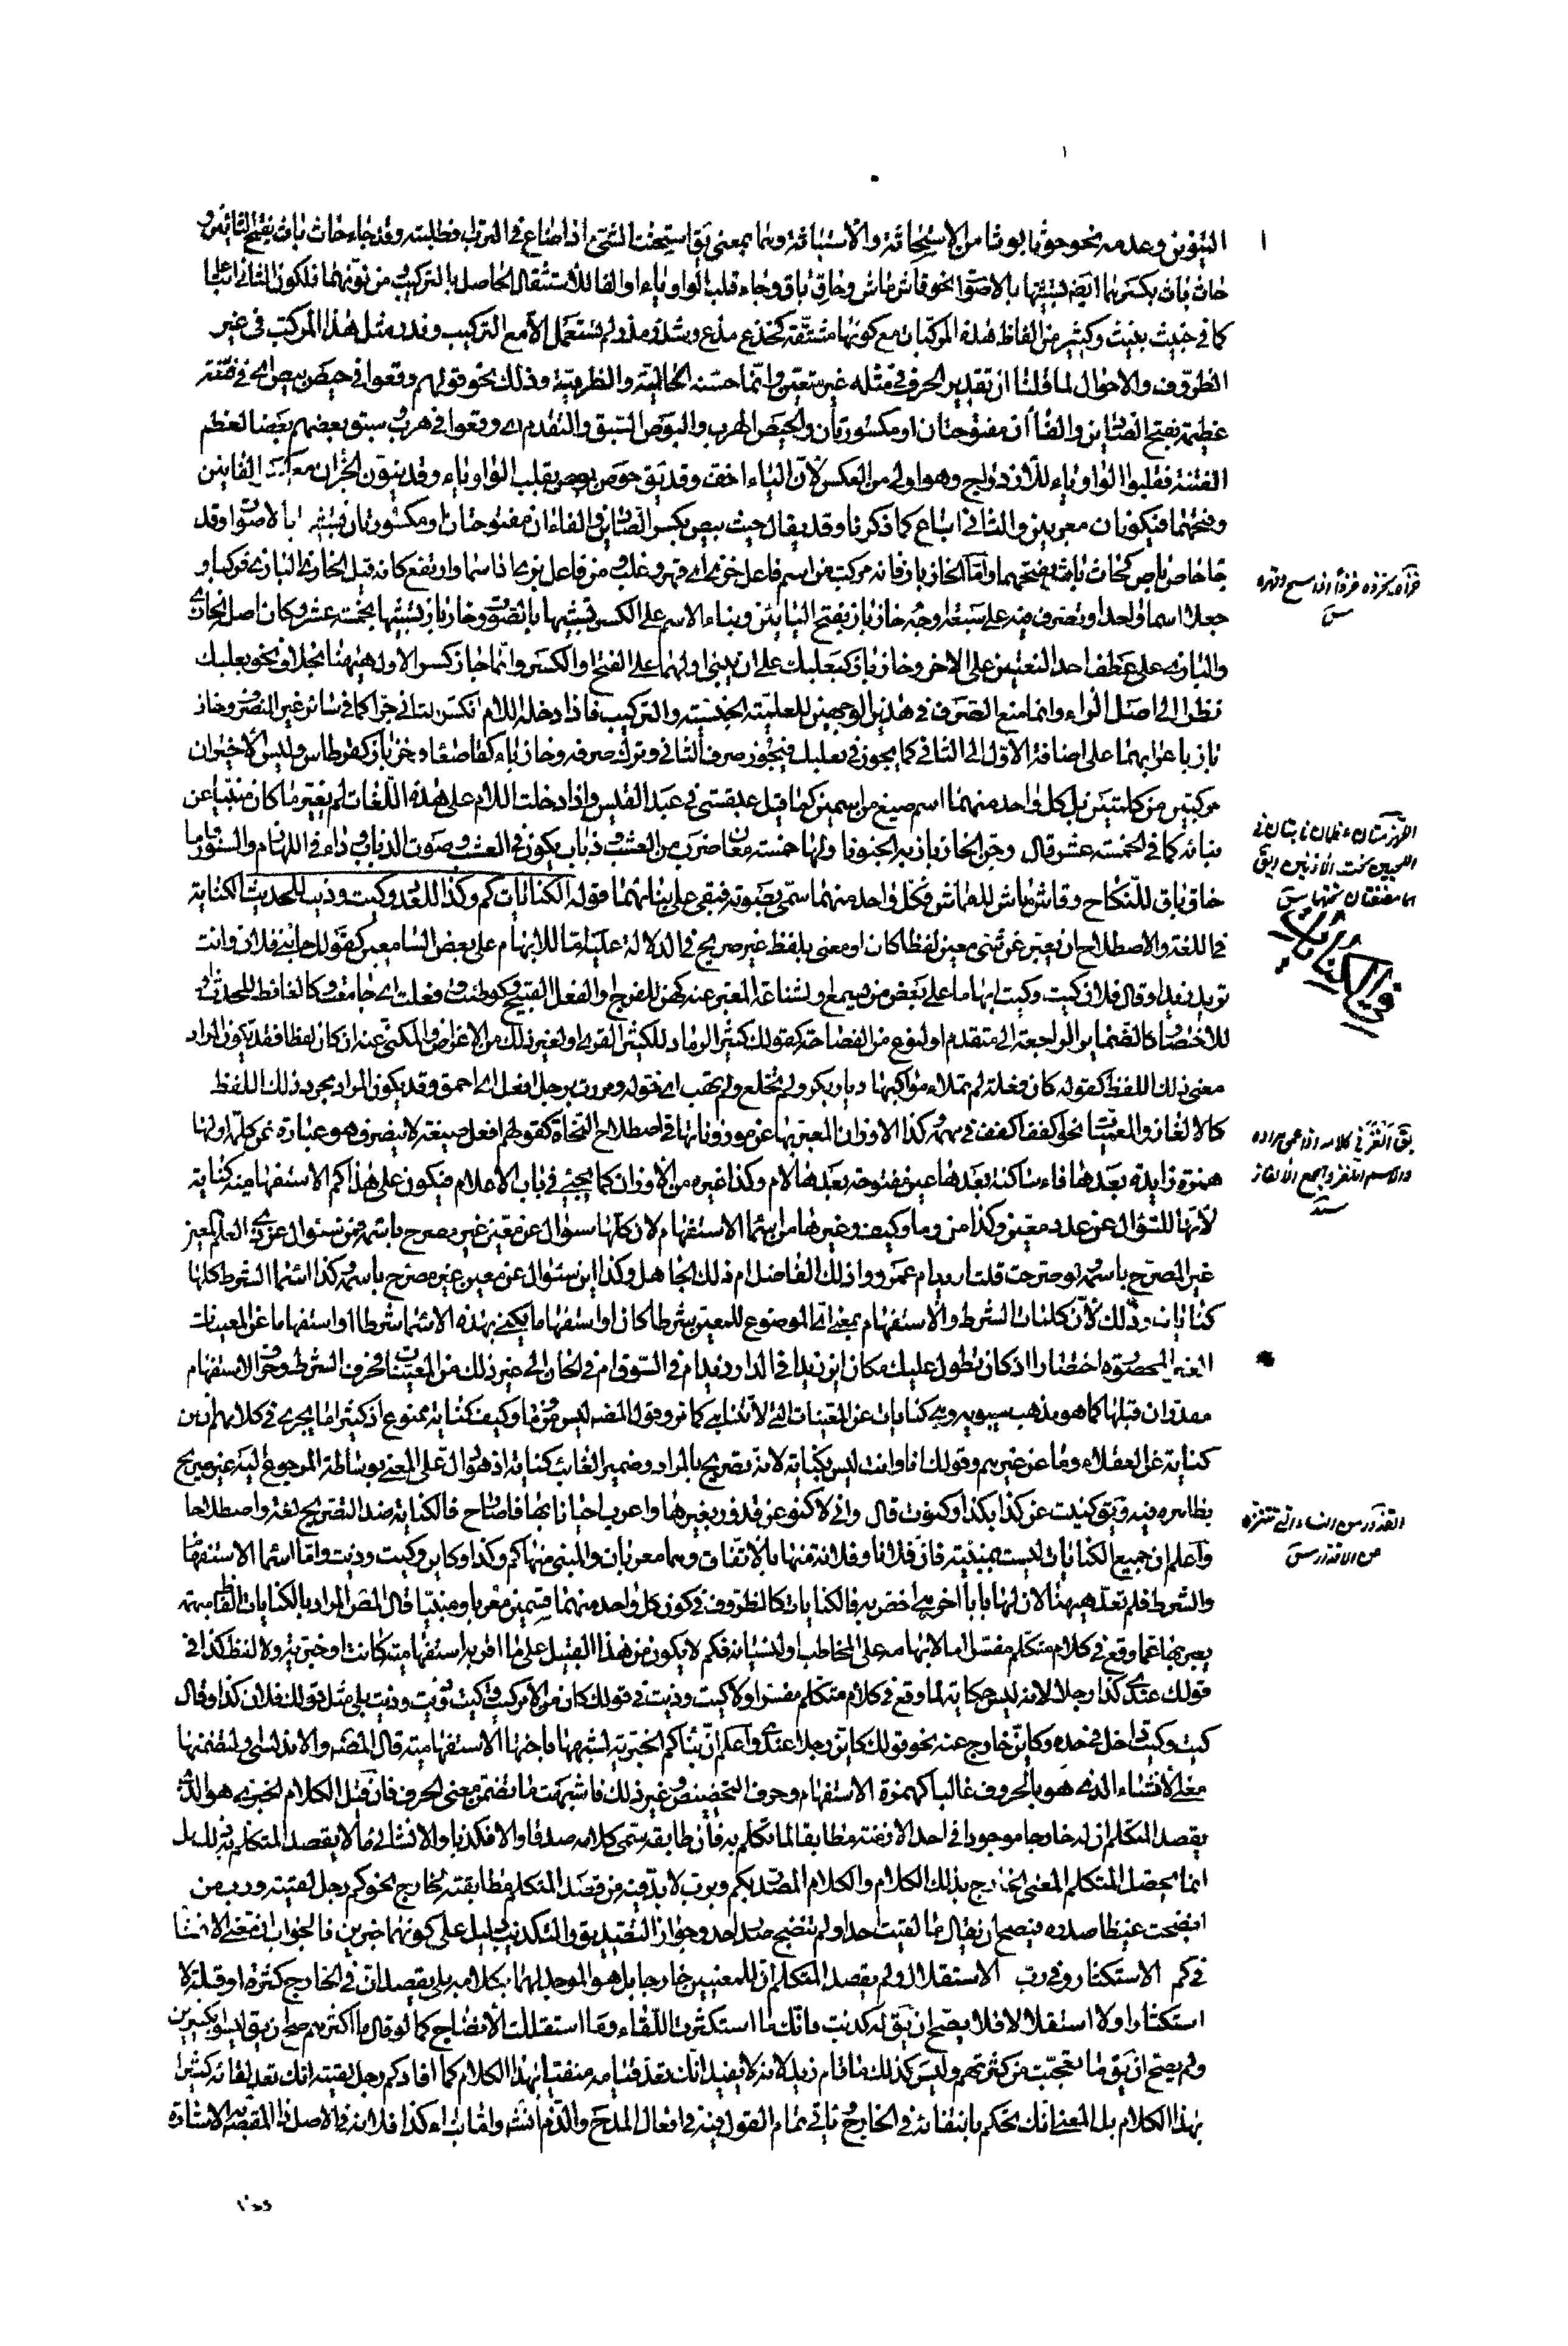 التنوين وعدمه نحو حوثا بوثا من الاستحاثة والاستباثة وهما بمعنى يق استحثت الشئ اذا ضاع في التراب فطلبته وقد جاء حاث باث بفتح الثائين و
حاث باث بكسرهما ايضا تشبيها بالاصوات نحو قاش ماش وخاق باق وجاء قلب الواو ياء او الفا للاستثقال الحاصل بالتركيب من نونهما فلكون الثاني اتباعا
كما في خبيث نبيث وكثير من الفاظ هذه المركبات مع كونها مشتقة كخذع مذع وشذر مذر لم يستعمل الا مع التركيب وندر مثل هذا المركب في غير
الظروف والاحوال لما قلنا ان تقدير الحرف في مثله غير متعين وانما حسنه الحالية والظرفية وذلك نحو قولهم وقعوا في حيص بيص اي في فتنة
عظيمة بفتح الصادين والفاأن مفتوحتان او مكسورتان والحيص الهرب والبوص السبق والتقدم اي وقعوا في هرب وسبق بعضهم بعضا لعظم
الفتنة فقلبوا الواو ياء للازدواج وهو اولى من العكس لأن الياء اخف وقد يق حوص بوص بقلب الياء واوا وقد ينون الجزءان مع كسر الفائين
وفتحهما فيكونان معربين والثاني اتباع كما ذكرنا وقد يقال حيص بيص بكسر الصادين والفاءان مفتوحتان او مكسورتان تشبيها بالاصوات وقد
جا حاص باص كحاث باث بفتحهما واما الخازباز فانه مركب من اسم فاعل خزى اي قهر وغلب ومن فاعل بزى اذا سما وارتفع كانه قيل الخازي البازي فركبا و
جعلا اسما واحدا وتصرف فيه على سبعة اوجه خازباز بفتح البائين وبناء الاسم على الكسر تشبيها بالصوت وخازباز تشبيها بخمسة عشر وكان اصل الخازي
والبازي على عطف احد النعتين على الاخر وخازباز كبعلبك على ان يبنى اولهما على الفتح او الكسر وانما جاز كسر الاول ههنا بخلاف نحو بعلبك
نظرا الى اصل الزاء وانما منع الصرف في هذين الوجهين للعلمية الجنسية والتركيب فاذا دخله اللام انكسر الثاني جرا كما في سائر غير المنصرف وخاز
باز باعرابهما على اضافة الاول الى الثاني كما يجوز في بعلبك فيجوز صرف الثاني وترك صرفه وخازباء كقاصعاء وخزباز كقرطاس وليس الاخيران
مركبين من كلمتين بل كل واحد منهما اسم صيغ من اسمين كما قيل عبقسي في عبد القيس واذا دخلت اللام على هذه اللغات لم يغير ما كان مبنيا عن
بنائه كما في الخمسة عشر قال وجن الخازباز به الجنونا ولها خمسة معان ضرب من العشب وذباب يكون في العشب وصوت الذباب وداء في اللهازم والسنور واما
خاق باق للنكاح وقاش ماش للقماش فكل واحد منهما سمي بصوته فبقي على بنائهما قوله الكنايات كم وكذا للعدد وكيت وذيت للحديث الكناية
في اللغة والاصطلاح ان يعبر عن شئ معين لفظا كان او معنى بلفظ غير صريح في الدلالة عليه اما للابهام على بعض السامعين كقولك جاءني فلان وانت
تريد زيدا وقال فلان كيت وكيت ابهاما على بعض من يسمع او لشناعة المعبر عنه كهن للفرج او الفعل القبيح كوطئت وفعلت اي جامعت وكالغائط للحدث او
للاختصار كالضمائر الراجعة الى متقدم او لنوع من الفصاحة كقولك كثير الرماد للكثير القرى او لغير ذلك من الاغراض والمكني عنه ان كان لفظا فقد يكون المراد
معنى ذلك اللفظ كقوله كان فعلة لم تملاء مواكبها ديار بكر ولم تخلع ولم تهب اي خولة ومررت برجل افعل اي احمق وقد يكون المراد مجرد ذلك اللفظ
كالالغاز والمعميات نحو اكفف اكفف في مهمه وكذا الاوزان المعبر بها عن موزوناتها في اصطلاح النحاة كقولهم افعل صيغة لا ينصرف وهو عبارة عن كلمة اولها
همزة زايدة بعدها فاء ساكنة بعدها عين مفتوحة بعدها لام وكذا غيره من الاوزان كما يجئ في باب الاعلام فيكون على هذا كم الاستفهامية كناية
لأنها للسؤال عن عدد معين وكذا من وما وكيف وغيرها من اسماء الاستفهام لان كلها سؤال عن معين غير مصرح باسمه فمن سؤال عن ذي العلم المعين
غير المصرح باسمه ولو صرحت قلت ازيد ام عمرو واذلك الفاضل ام ذلك الجاهل وكذا اين سئوال عن معين غير مصرح باسمه وكذا اسماء الشرط كلها
كنايات وذلك لأن كلمات الشرط والاستفهام بمعنى اي الموضوع للمعين شرطا كان او استفهاما يكنى بهذه الاسماء شرطا او استفهاما عن المعينات
الغير المحصورة اختصارا اذ كان يطول عليك مكان اين زيد افي الدار زيد ام في السوق ام في الخان الى غير ذلك من المعينات فحرف الشرط وحرف الاستفهام
مقدران قبلها كما هو مذهب سيبويه وهي كنايات عن المعينات التي لا تتناهى كما مر وقول المصنف ليس من وما وكيف كناية ممنوع اذ كثيرا ما يجري في كلامهم ان من
كناية عن العقلاء وما عن غيرهم وقولك انا وانت ليس بكناية لانه تصريح بالمراد وضمير الغائب كناية اذ هو دال على المعنى بوساطة المرجوع اليه غير صريح
بظاهره فيه ويق كنيت عن كذا بكذا وكنوت قال واني لاكنو عن قذور بغيرها واعرب احيانا بها فاصارح فالكناية ضد التصريح لغة واصطلاحا
واعلم ان جميع الكنايات ليست بمبنية فان فلانا وفلانة منها بالاتفاق وهما معربان والمبني منها كم وكذا وكاين وكيت وذيت واما اسماء الاستفهام
والشرط فلم تعد ههنا لان لها بابا اخر هي اخص به فالكنايات كالظروف في كون كل واحد منهما قسمين معربا ومبنيا قال المصنف المراد بالكنايات الفاظ مبهمة
يعبر بها عما وقع في كلام متكلم مفسرا اما لابهامه على المخاطب او لنسيانه فكم لا يكون من هذا القبيل على ما اقر به استفهامية كانت او خبرية ولا لفظ كذا في
قولك عندي كذا رجلا لانه ليس حكاية لما وقع في كلام متكلم مفسرا ولا كيت وذيت في قولك كان من الامر كيت وكيت وذيت وذيت بلى مثل قولك فلان كذا وقال
كيت وكيت داخل في حده وكاين خارج عنه نحو قولك كاين رجلا عندي واعلم ان بناء كم الخبرية لشبهها باختها الاستفهامية قال المصنف والاندلسي ولتضمنها
معنى الانشاء الذي هو بالحروف غالبا كهمزة الاستفهام وحرف التحضيض وغير ذلك فاشبهت ما تضمن معنى الحرف فان قيل الكلام الخبري هو الذي
يقصد المتكلم ان له خارجا موجودا في احد الازمنة مطابقا لما تكلم به فان طابقه سمي كلامه صدقا والا فكذبا والانشائي ما لا يقصد المتكلم به ذلك بل
انما يحصل المتكلم المعنى الخارج بذلك الكلام والكلام المصدر بكم وبرب لا بد فيه من قصد المتكلم مطابقته للخارج نحو كم رجل لقيته ورب من
انضجت غيظا صدره فيصح ان يقال ما لقيت احدا ولم تنضج صدر احد وجواز التصديق والتكذيب دليل على كونهما خبرين فالجواب ان معنى الانشاء
في كم الاستكثار وفي رب الاستقلال ولم يقصد المتكلم ان للمعنيين خارجا بل هو الموجد لهما بكلامه بلى يقصد ان في الخارج كثرة او قلة لا
استكثارا ولا استقلالا فلا يصح ان يق له كذبت فانك ما استكثرت اللقاء وما استقللت الانضاج كما لو قال ما اكثرهم صح ان يق ليسوا بكثيرين
ولم يصح ان يق ما تعجبت من كثرتهم وليس كذلك ما قام زيد لانه لا يفيد انك تعد قيامه منفيا بهذا الكلام كما افاد كم رجل لقيته انك تعد لقائه كثيرا
بهذا الكلام بل المعنى انك تحكم بانتفائه في الخارج ويأتي تمام القول فيه في افعال المدح والذم انشاء واما بناء كذا فلانه في الاصل ذا المقصود به الاشارة
في الكنايات